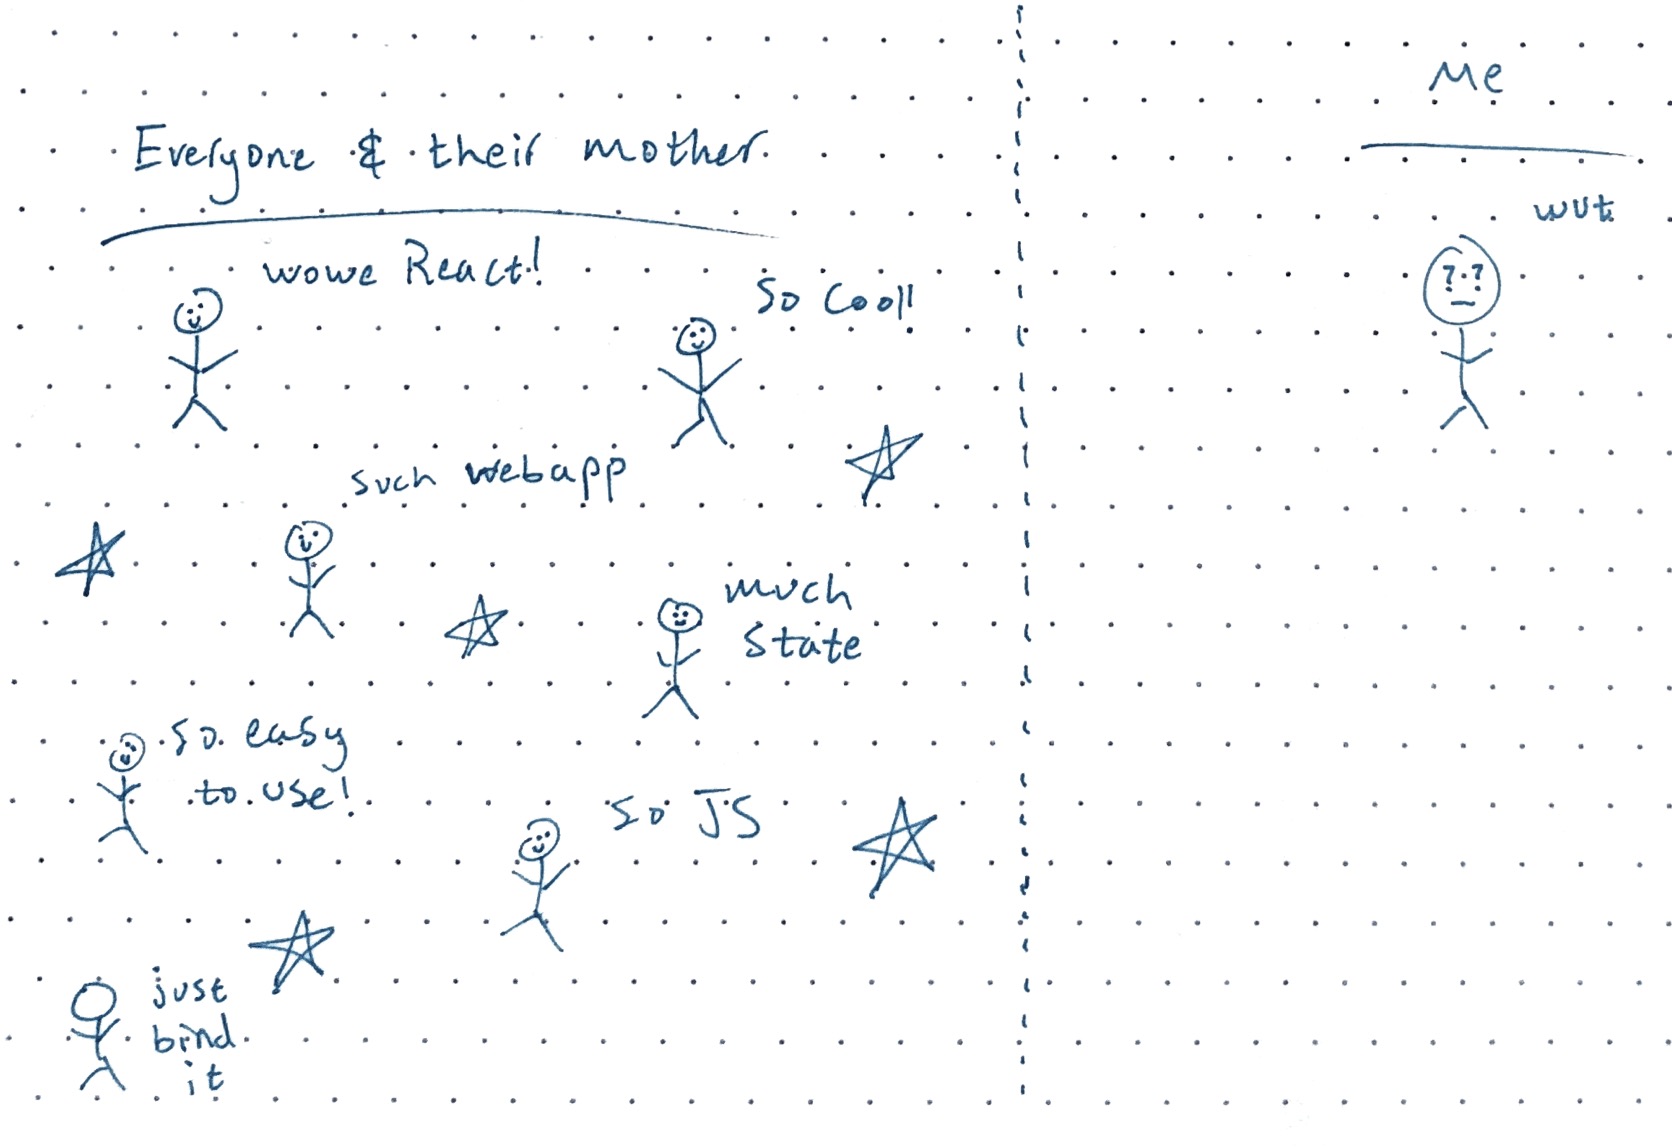 Everyone & their mother
wowe React!
So Cool!
such webapp
much
state
so easy
to use!
so JS
just
bind
it
Me
wut
? ?